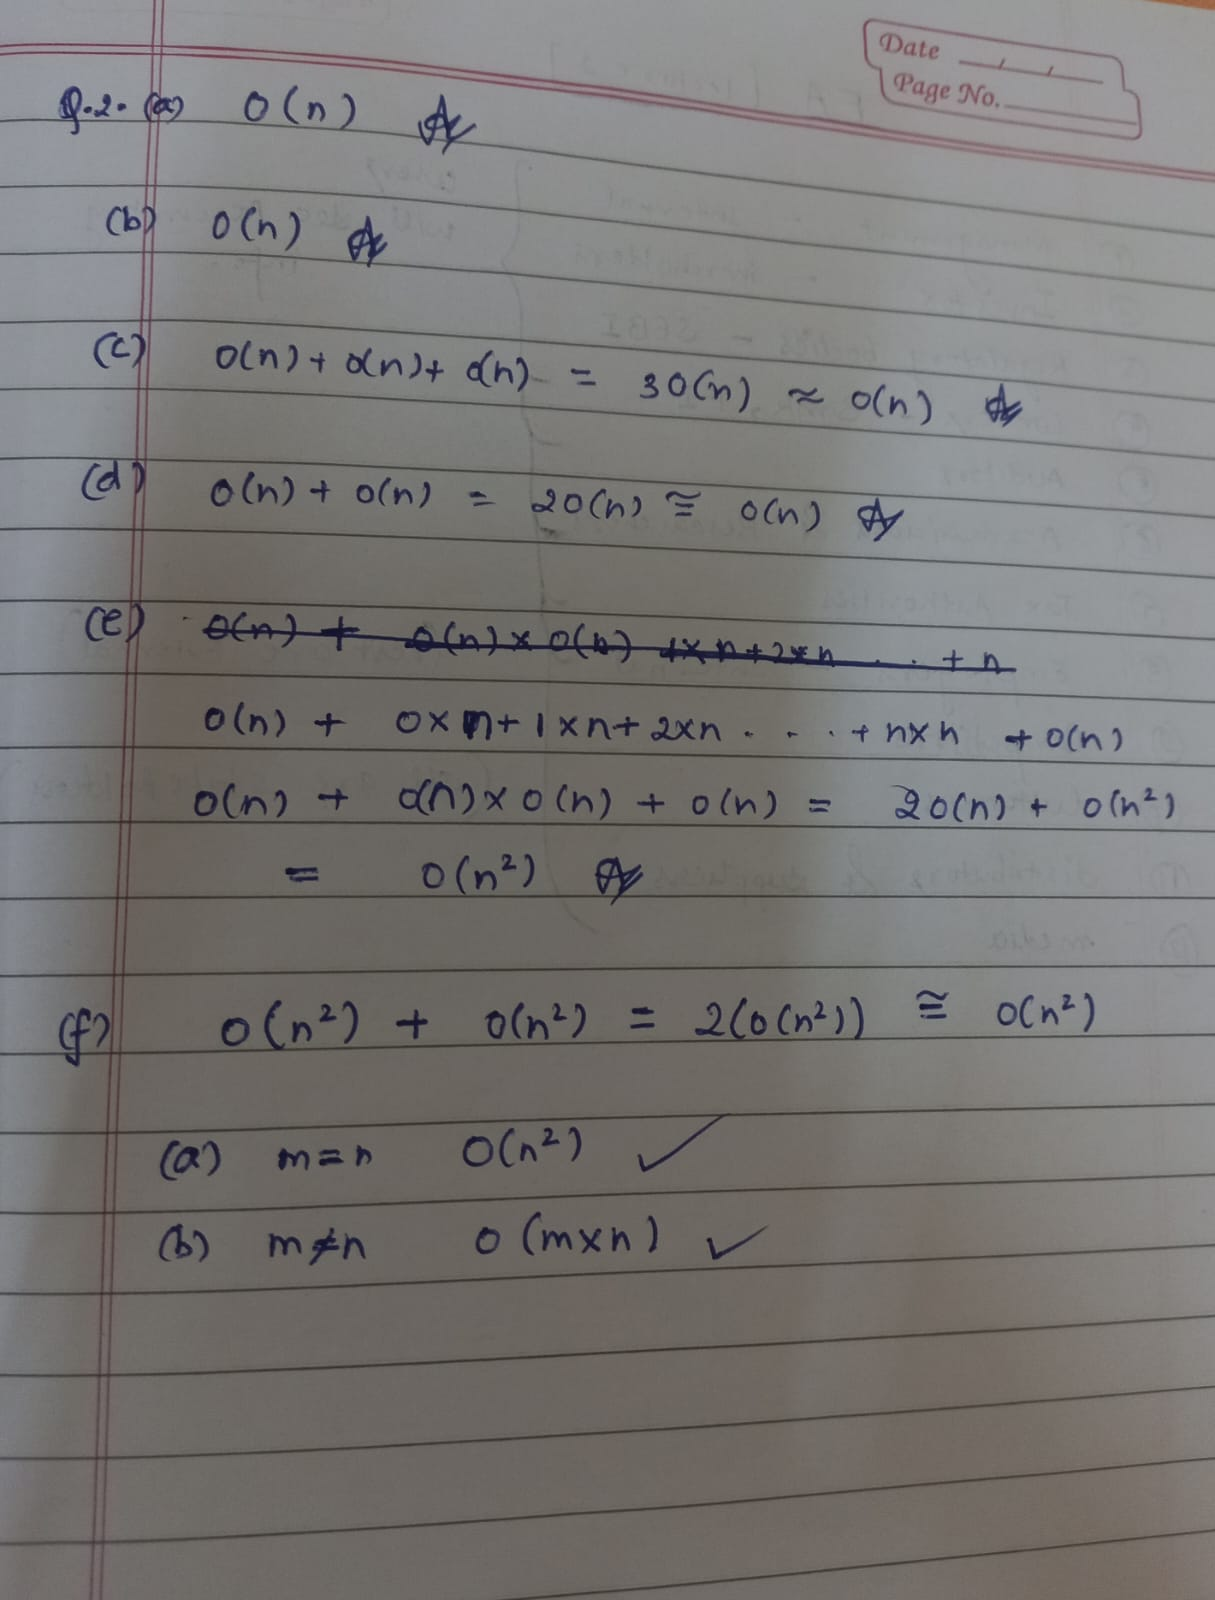 Date
Page No.
Q.2. (a) O(n)
(b) O(n)
(c) O(n) + O(n) + O(n) = 3O(n) ≈ O(n)
(d) O(n) + O(n) = 2O(n) ≅ O(n)
(e) O(n) + O(n) × O(n) 1×n + 2×n . . . + n
O(n) + 0×n + 1×n + 2×n . . . . + n×n + O(n)
O(n) + O(n) × O(n) + O(n) = 2O(n) + O(n²)
= O(n²)
(f) O(n²) + O(n²) = 2(O(n²)) ≅ O(n²)
(a) m=n O(n²) ✓
(b) m≠n O(m×n) ✓